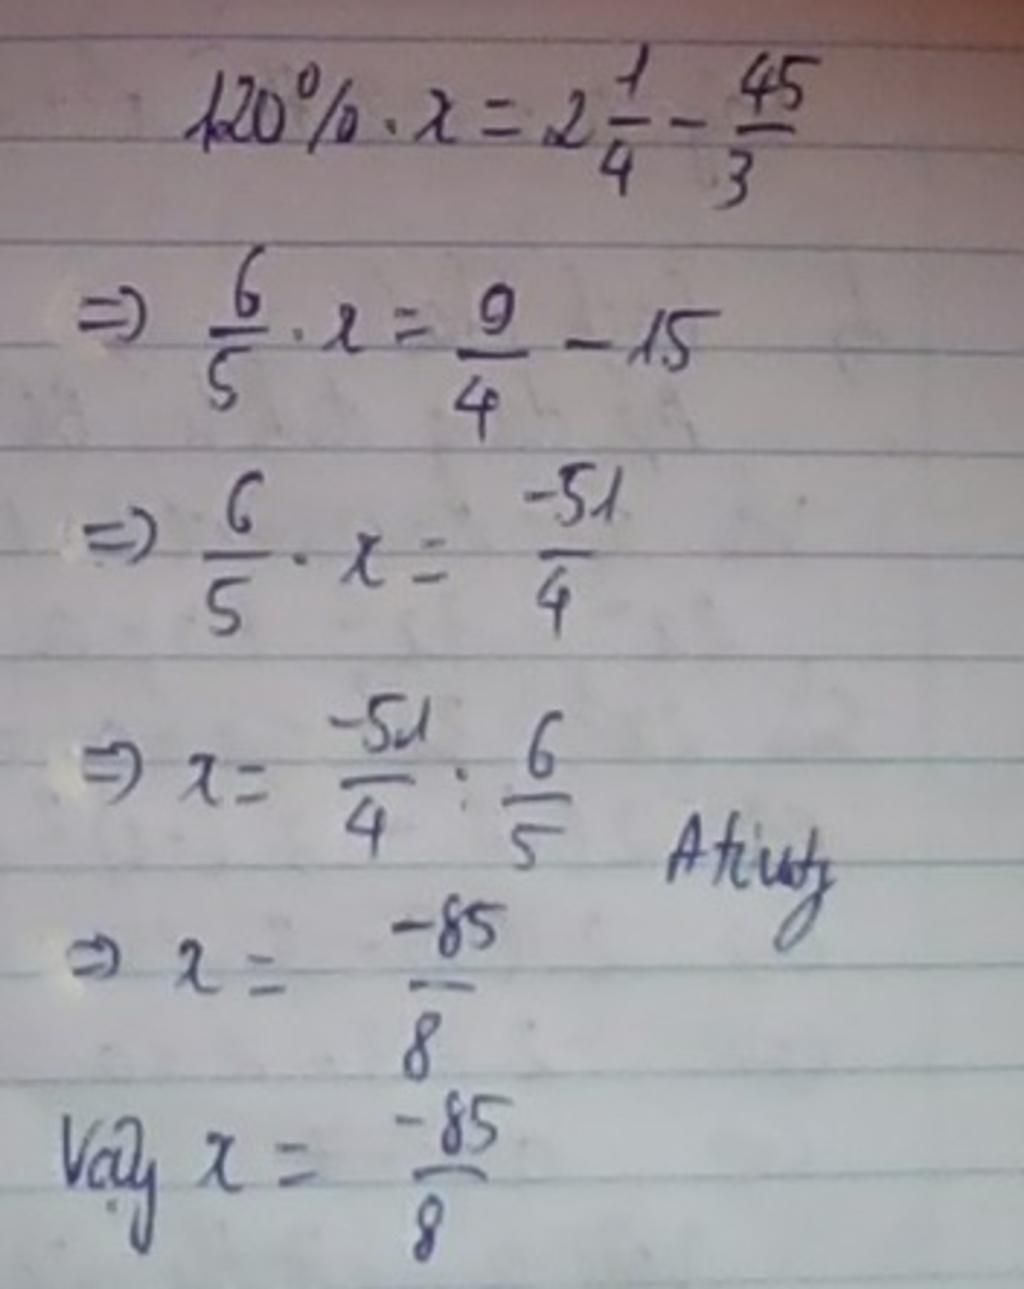 120% . x = 2 1/4 - 45/3
=> 6/5 . x = 9/4 - 15
=> 6/5 . x = -51/4
=> x = -51/4 : 6/5
=> x = -85/8
Vậy x = -85/8